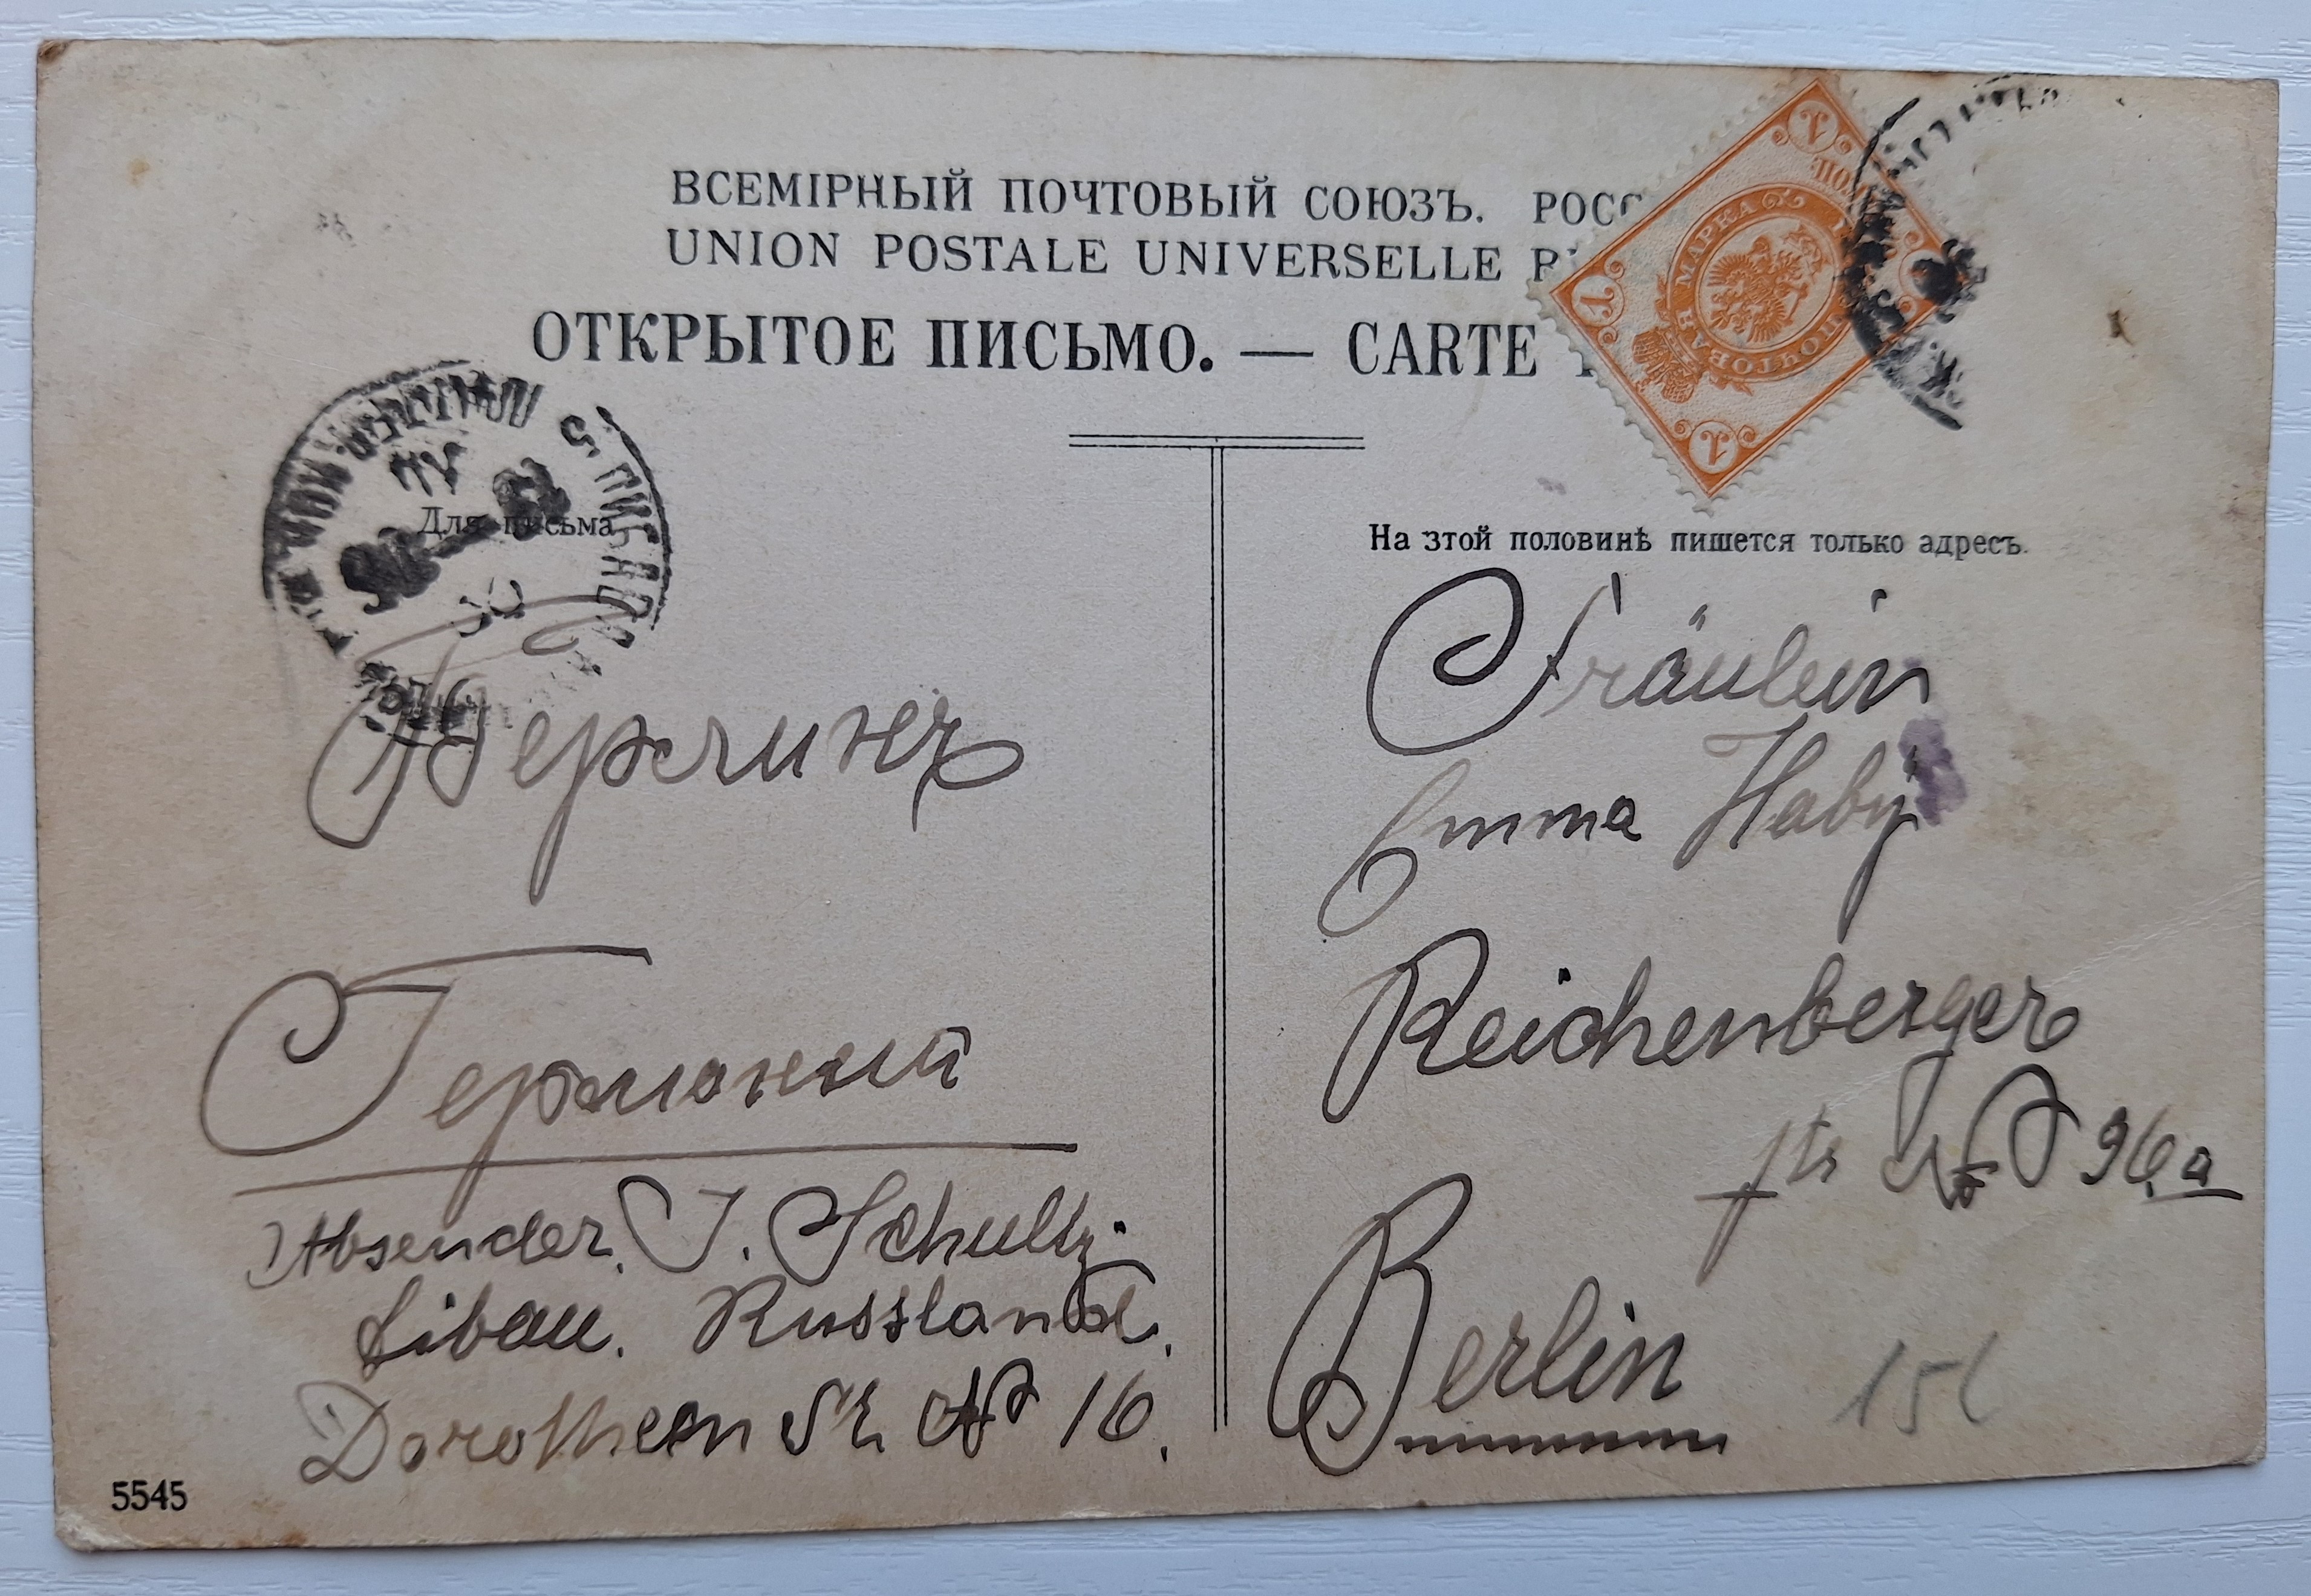 ВСЕМІРНЫЙ ПОЧТОВЫЙ СОЮЗЪ. РОСС
UNION POSTALE UNIVERSELLE R
ОТКРЫТОЕ ПИСЬМО. — CARTE
ПОЧТОВАЯ МАРКА
1
1
1
Для письма
На этой половинѣ пишется только адресъ.
Берлинъ
Германий
Absender. J. Schultz.
Libau. Russland.
Dorotheen St № 16.
5545
Fräulein
Emma Haby
Reichenberger
str № 96.a
Berlin